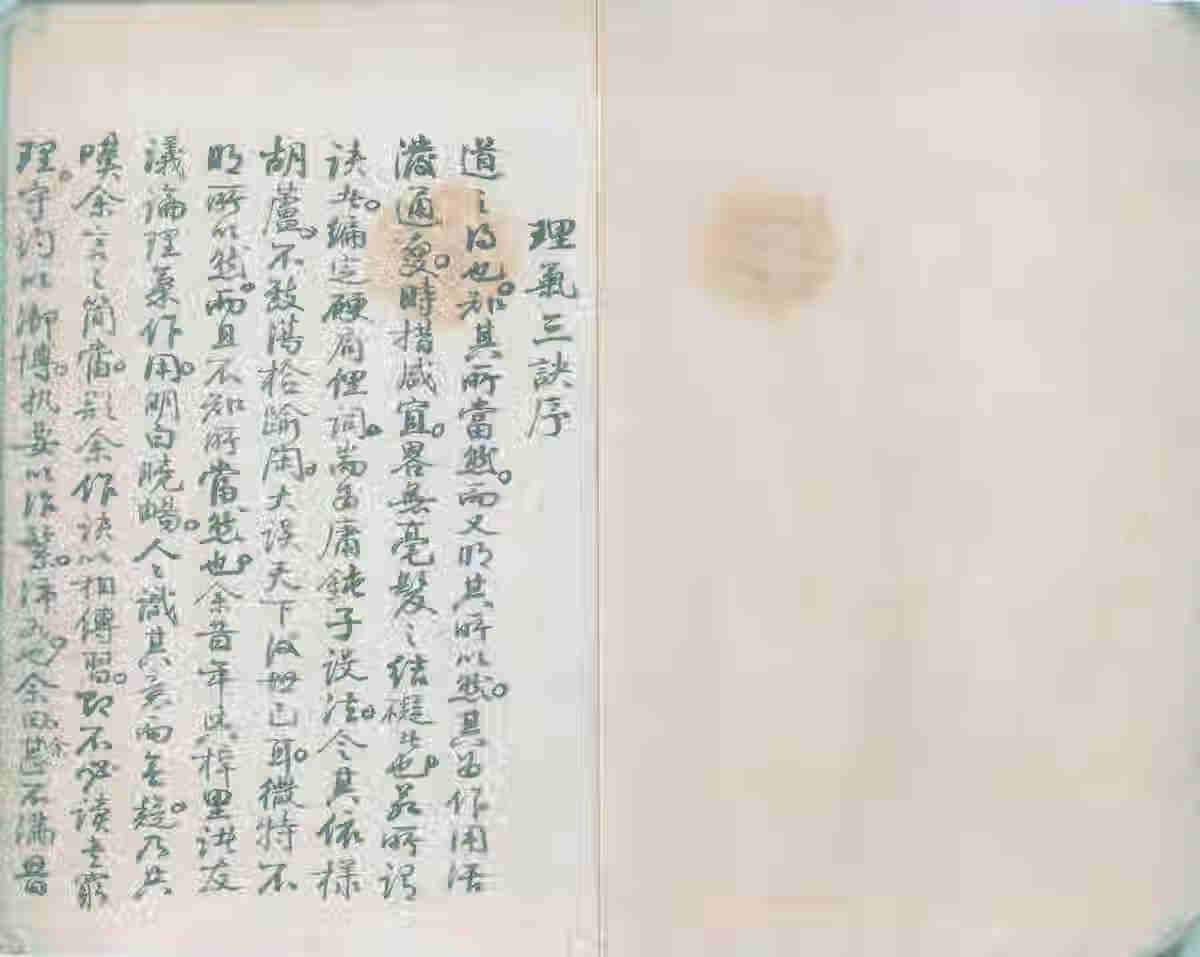 理氣三訣序
道之得也。知其所當然。而又明其所以然。其為作用活
潑通變。時措咸宜。畧無毫髮之結礙也。若所謂
訣此。編定硬局俚詞。為庸鈍子設法。令其依樣
胡蘆。不敢蕩檢踰閑。大誤天下後世已耳。微特不
明所以然。而且不知所當然也。余昔年與梓里諸友
議論理氣作用。明白曉暢。人人識其言而無疑。乃共
嘆余言之簡當。余作訣以相傳習。即不必讀書窮
理。守約以御博。执要以作繁。余不滿昔